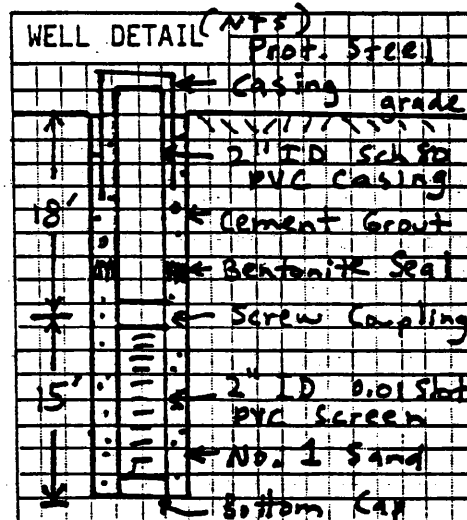 WELL DETAIL (NTS)
Prot. Steel
Casing
grade
2" ID Sch 80
PVC Casing
18'
Cement Grout
Bentonite Seal
Screw Coupling
15'
2" ID 0.01 Slot
PVC Screen
No. 1 Sand
Bottom Cap